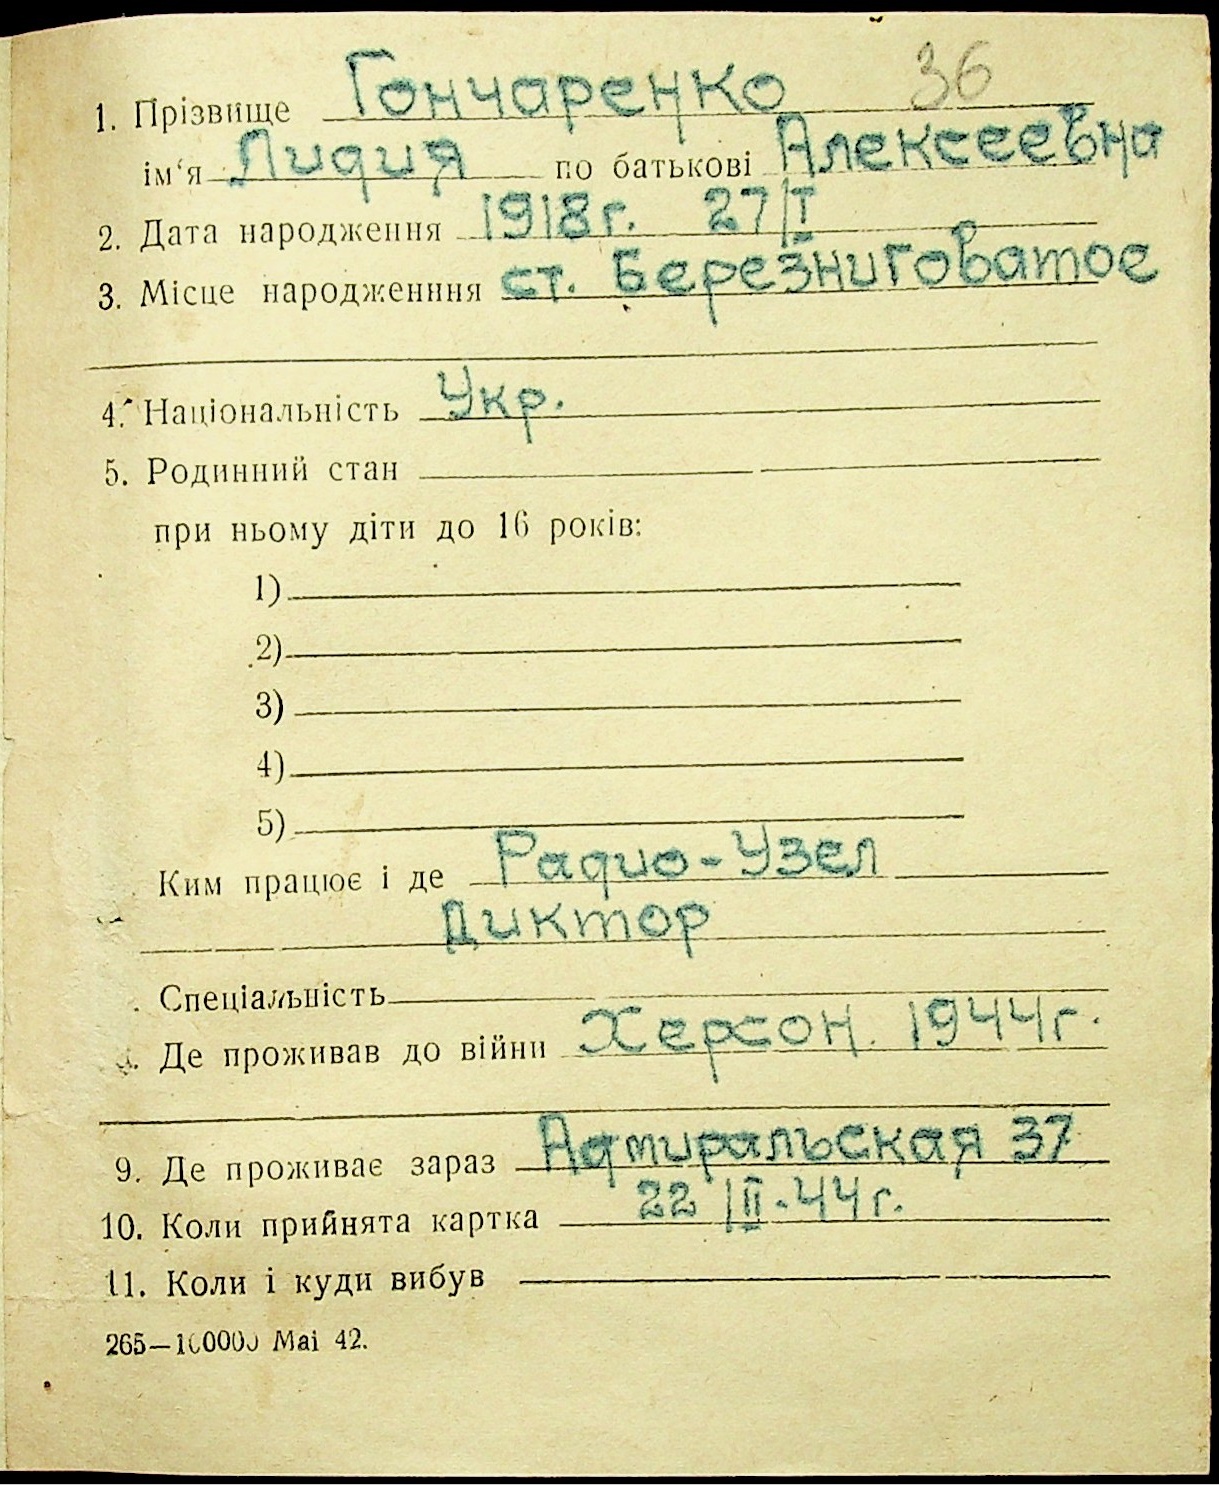 36
1. Прізвище Гончаренко
ім'я Лидия по батькові Алексеевна
2. Дата народження 1918г. 27/I
3. Місце народженння ст. Березниговатое
4. Національність Укр.
5. Родинний стан
при ньому діти до 16 років:
1)
2)
3)
4)
5)
Ким працює і де Радио-Узел
Диктор
Спеціальність
Де проживав до війни Херсон. 1944г.
9. Де проживає зараз Адмиральская 37
10. Коли прийнята картка 22/II-44г.
11. Коли і куди вибув
265—100000 Mai 42.